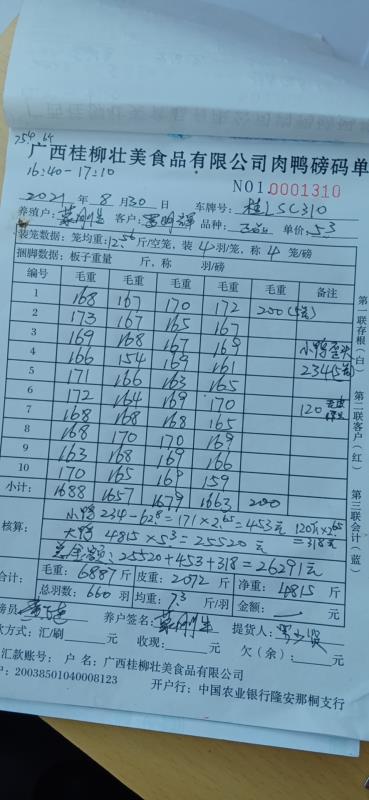 754.64
广西桂柳壮美食品有限公司肉鸭磅码单
16:40-17:10
NO1.0001310
2021年 8月30日 车牌号: 桂LSC310
养殖户: 客户: 品种: 单价: 5.3
装笼数据: 笼均重: 12.56 斤/空笼, 装 4 羽/笼, 称 4 笼/磅
捆脚数据: 板子重量 斤, 称 羽/磅
编号 毛重 毛重 毛重 毛重 毛重 备注
1 168 167 170 172 200
2 173 167 165 167
3 169 168 167 169 小鸭
4 166 154 169 161 234斤
5 171 166 163 165
6 172 164 169 170 120
7 168 168 168 165
8 168 170 170 169
9 163 168 169 166
10 170 165 169 159
小计: 1688 1657 1679 1663 200
核算: 小鸭 234-62.8=171×2.65=453元 120斤×2.65=318元
大鸭 4815×5.3=25520元
总金额: 25520+453+318=26291元
合计: 毛重: 6887斤 皮重: 2072斤 净重: 4815斤
总羽数: 660羽 均重: 7.3斤/羽 金额: 元
务员 养户签名: 提货人:
款方式: 汇/刷 元 收现: 元 欠(余): 元
汇款账号: 户 名: 广西桂柳壮美食品有限公司
户: 20038501040008123 开户行: 中国农业银行隆安那桐支行
第一联存根(白) 第二联客户(红) 第三联会计(蓝)